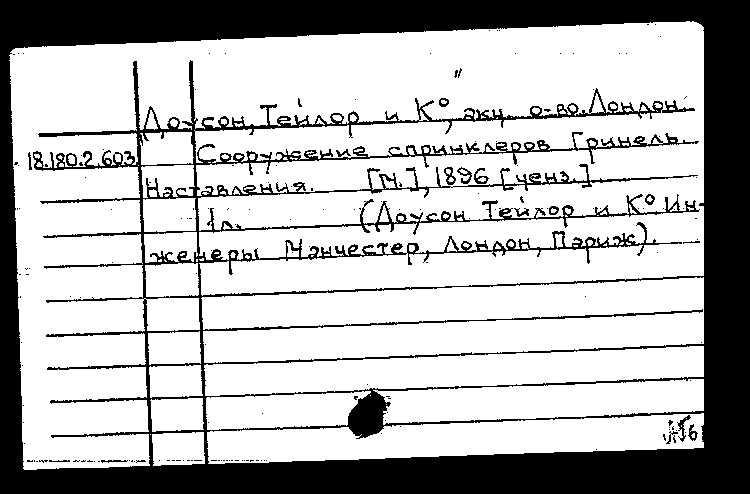 Доусон, Тейлор и К⁰", акц. о-во. Лондон.
18.180.2.603. Сооружение спринклеров Гринель.
Наставления. [М.], 1896 [ценз.].
1л. (Доусон Тейлор и К⁰ Ин-
женеры Манчестер, Лондон, Париж).